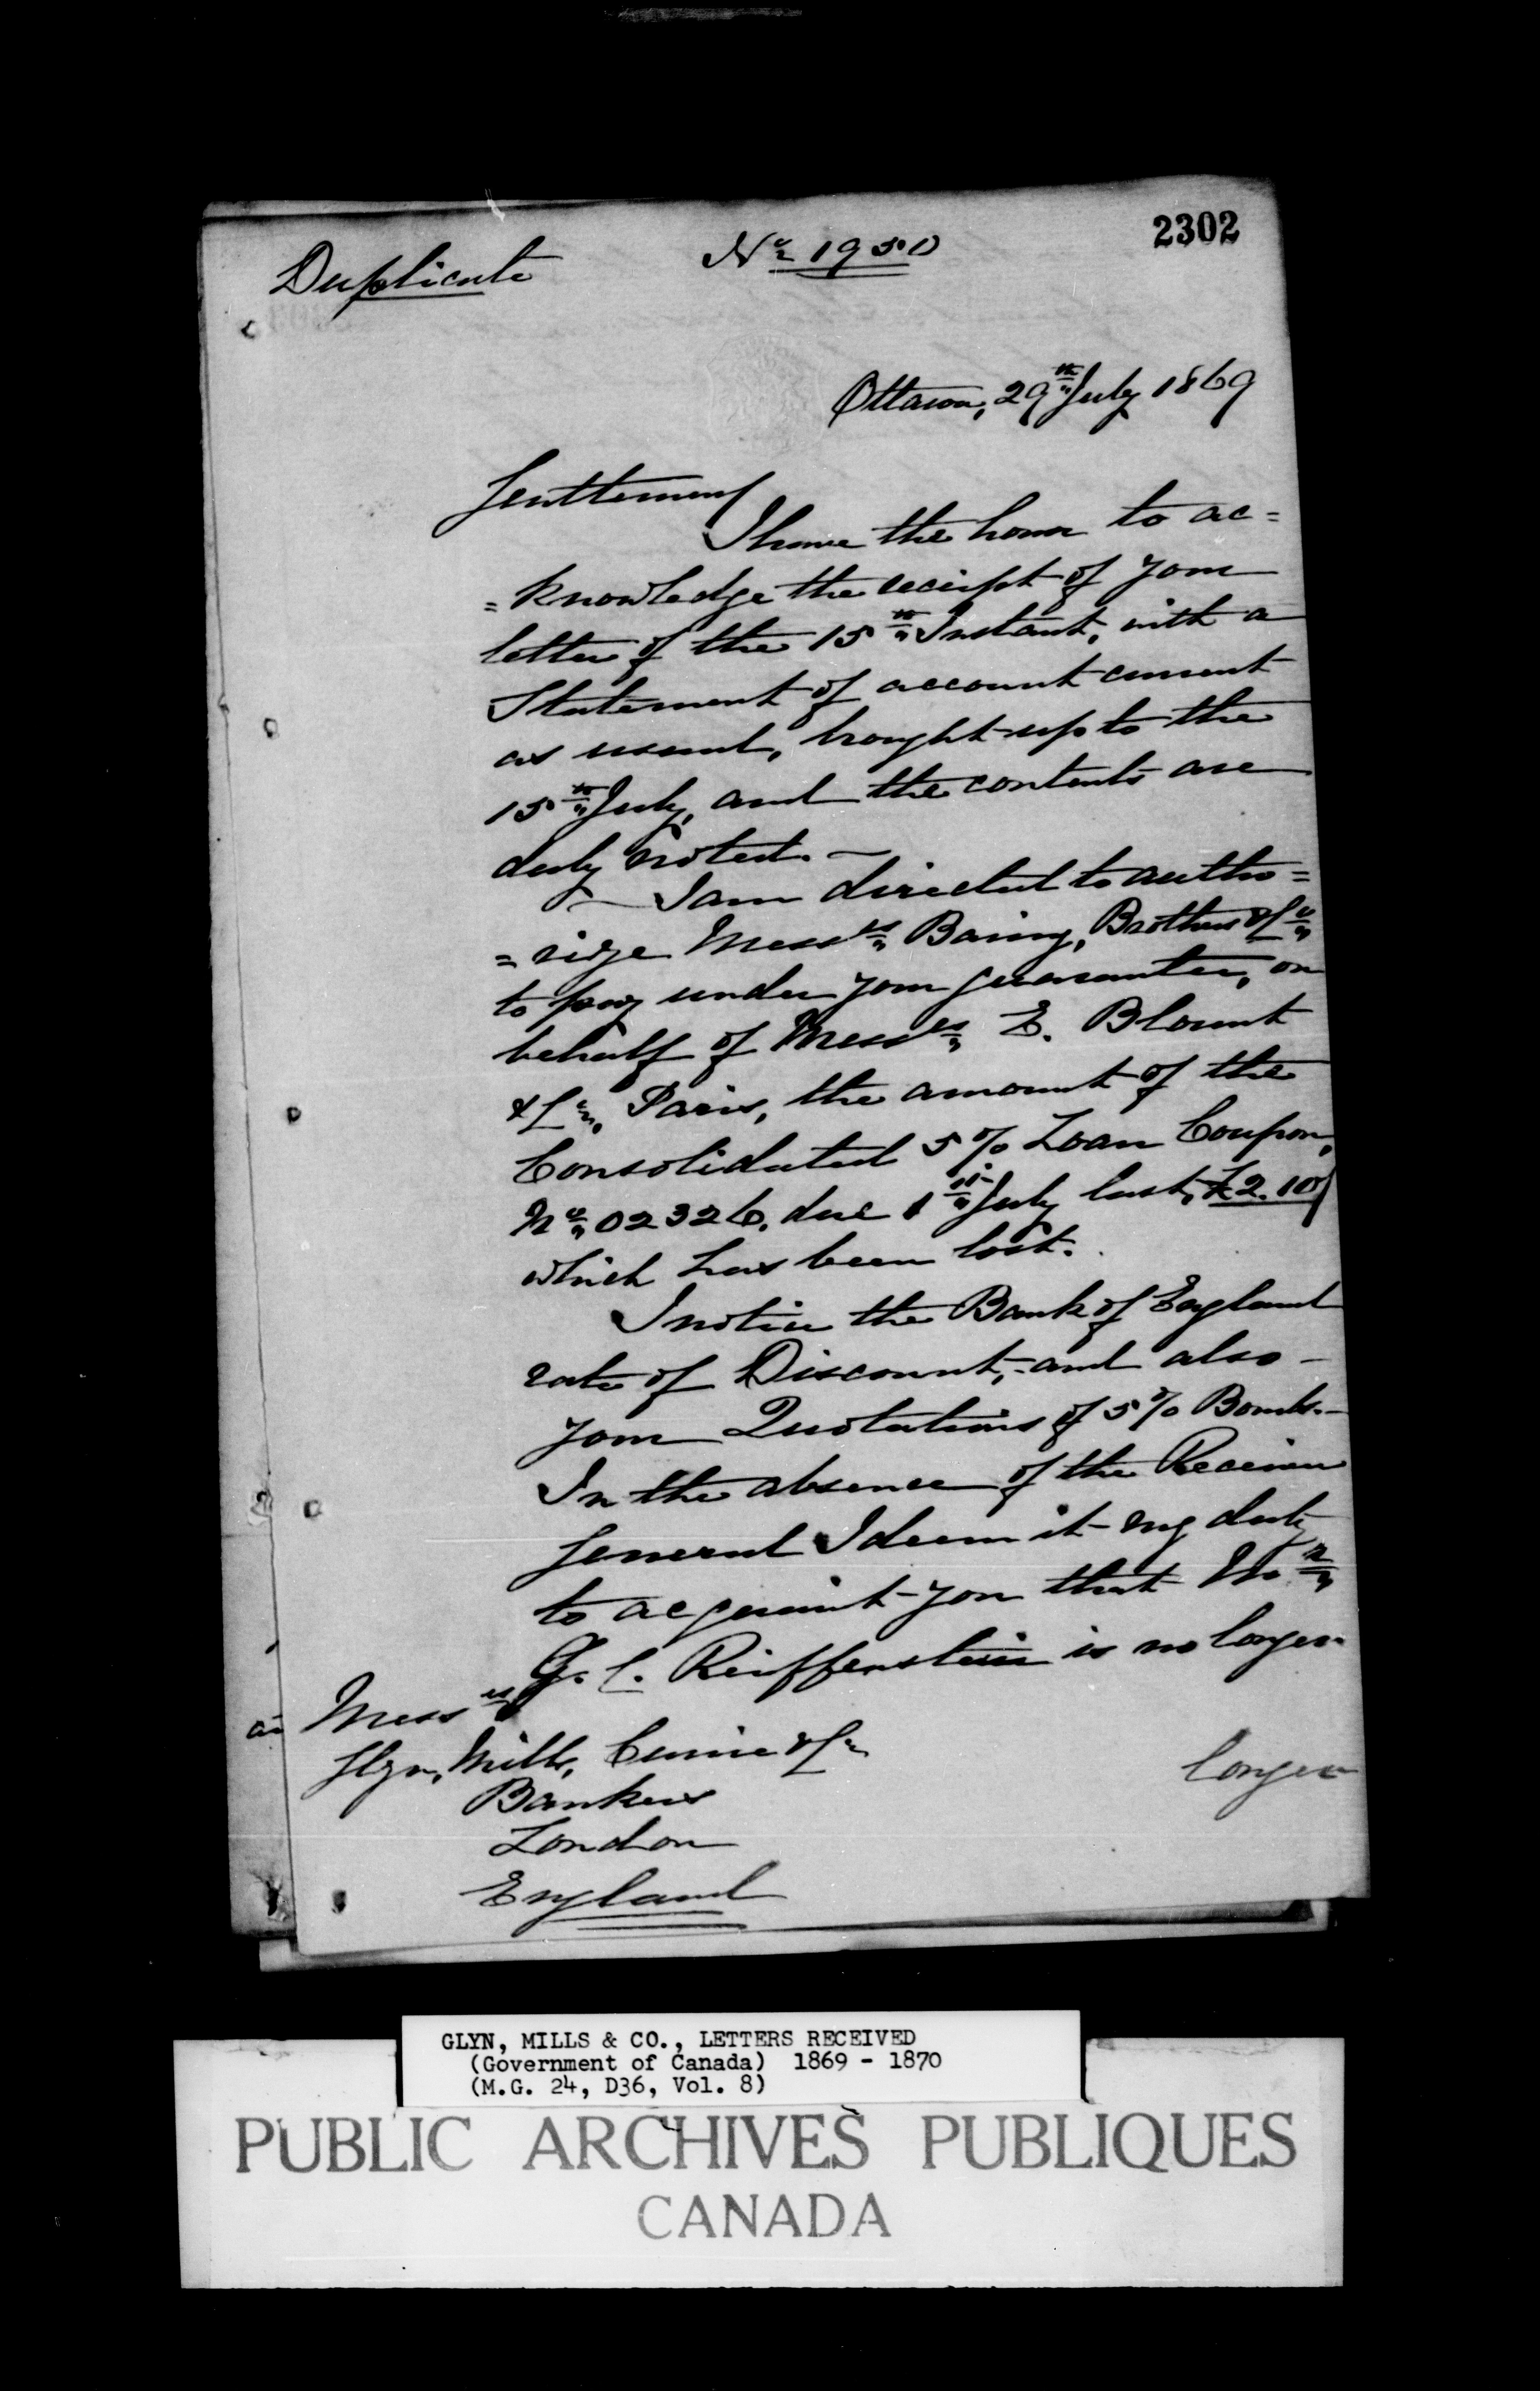 2302
Duplicate
No 1950
Ottawa, 29th July 1869
Gentlemen
I have the honor to ac=
=knowledge the receipt of your
letter of the 15th Instant, with a
Statement of account current
as usual, brought up to the
15th July, and the contents are
duly noted. —
— I am directed to autho=
=rize Messrs Baring, Brothers & Co
to pay under your guarantee, on
behalf of Messrs E. Blount
& Co, Paris, the amount of the
Consolidated 5% Loan Coupon,
No 02326, due 1st July last, £2.10/
which has been lost.
I notice the Bank of England
rate of Discount, and also —
your Quotations of 5% Bonds. —
In the absence of the Receiver
General I deem it my duty
to acquaint you that Mr
G. C. Reiffenstein is no longer
longer
Messrs
Glyn, Mills, Currie & Co
Bankers
London
England
GLYN, MILLS & CO., LETTERS RECEIVED
(Government of Canada) 1869 - 1870
(M.G. 24, D36, Vol. 8)
PUBLIC ARCHIVES PUBLIQUES
CANADA